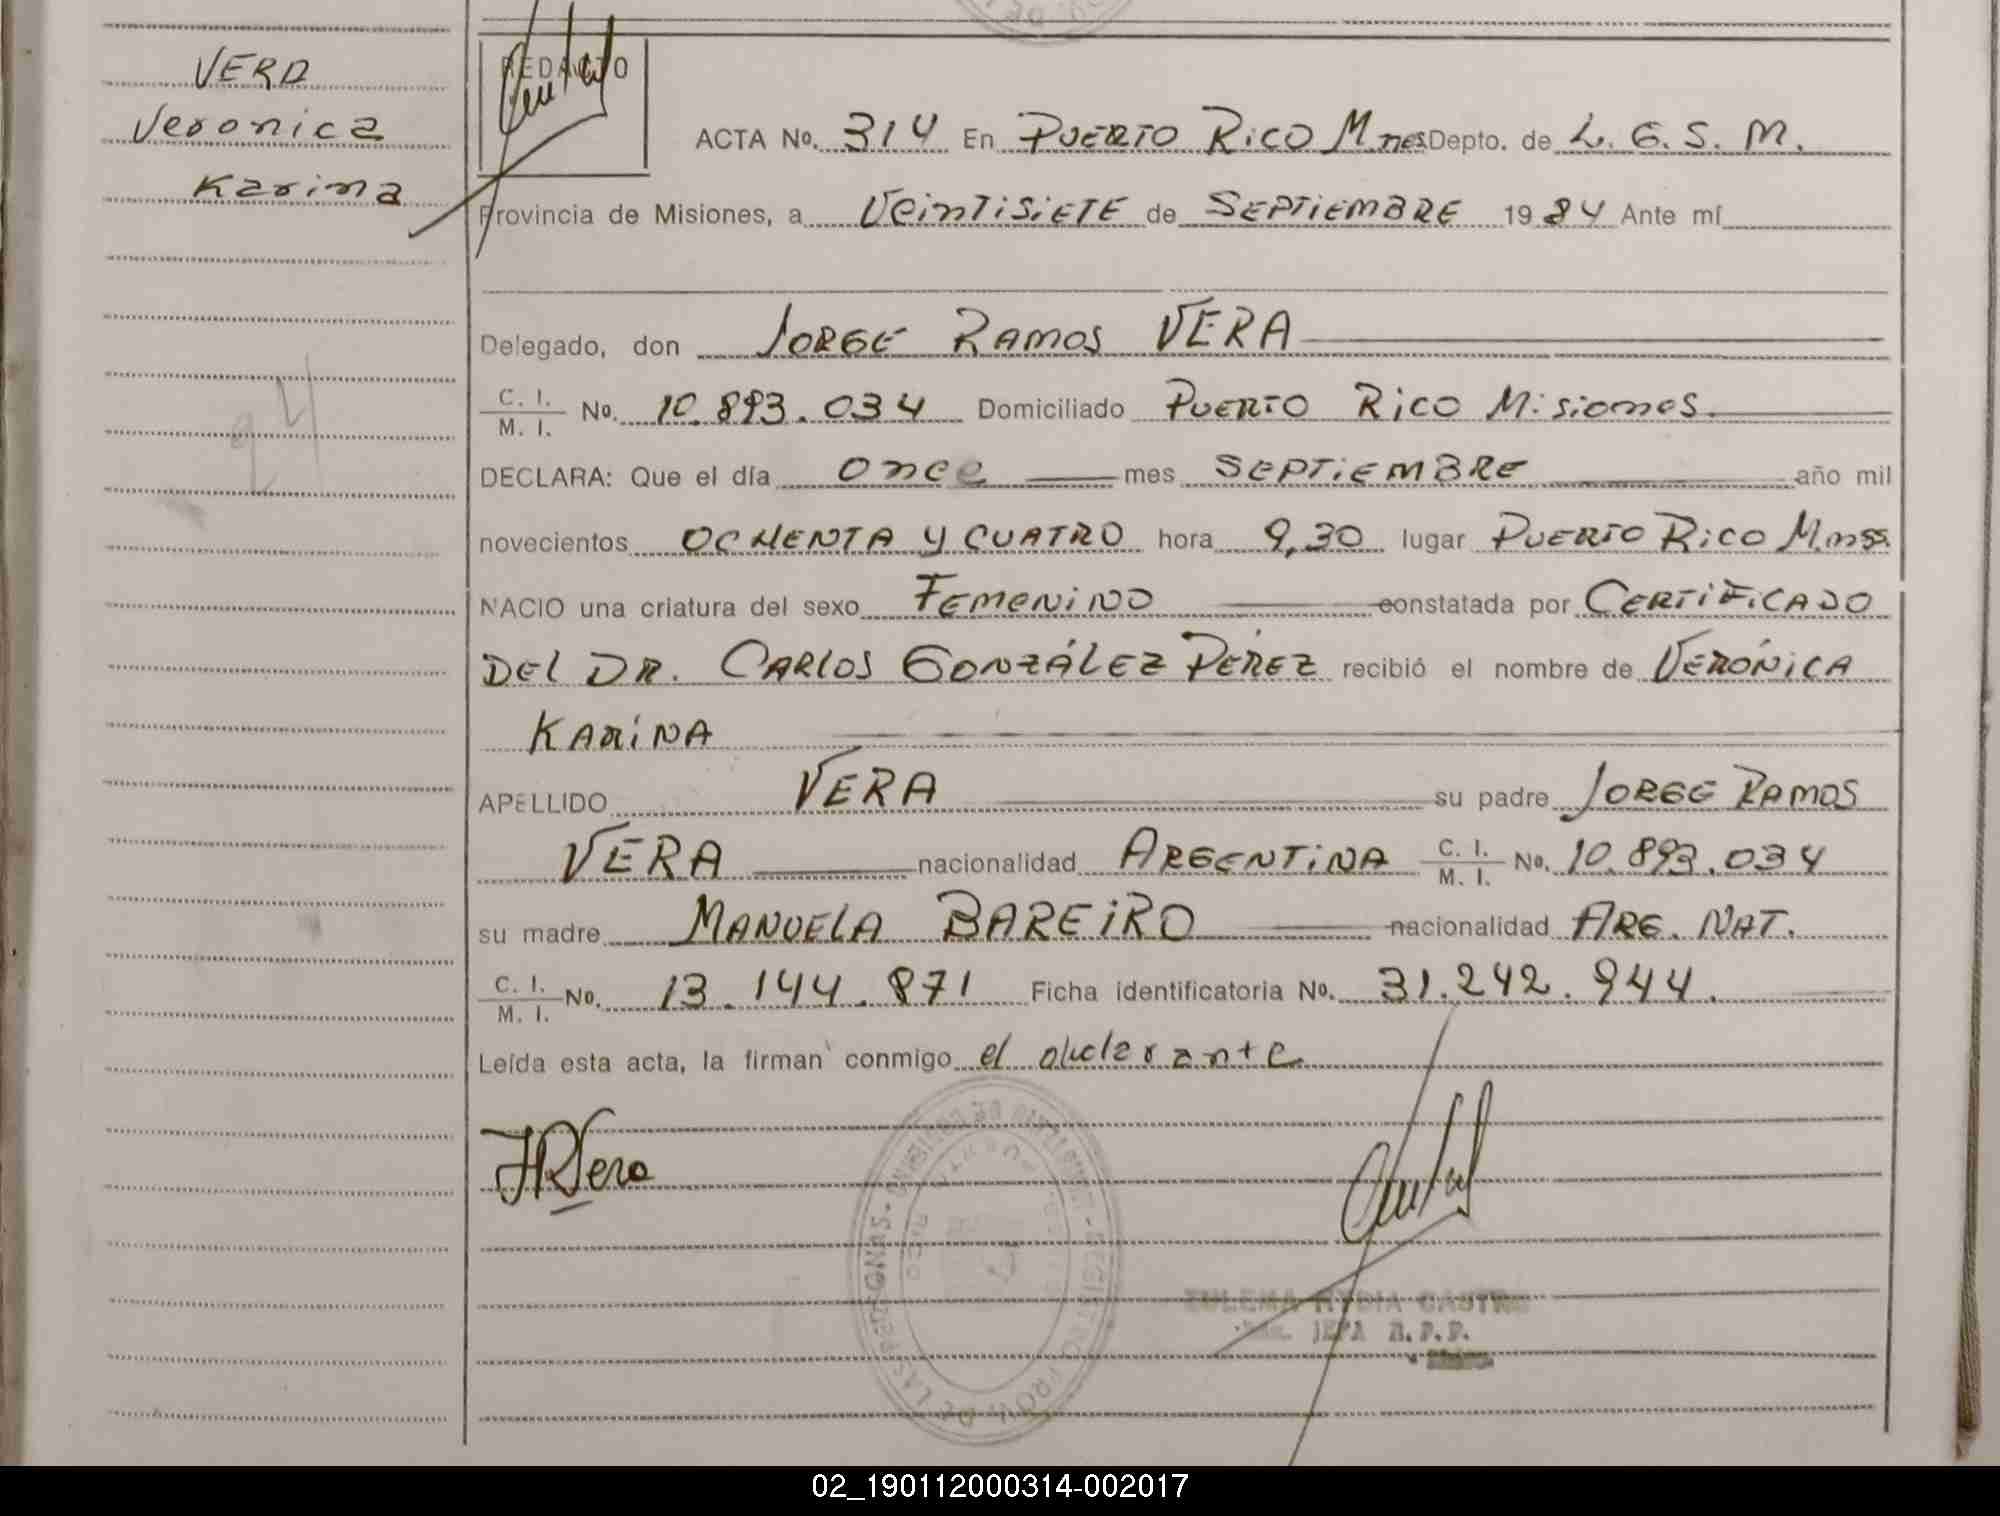 VERA
Veronica
Karina
REDACTO
ACTA No. 314 En PUERTO RICO M nes Depto. de L. G. S. M.
Provincia de Misiones, a VEINTISIETE de SEPTIEMBRE 19 84 Ante mí
Delegado, don JORGE RAMOS VERA
C. I.
M. I. No. 10.893.034 Domiciliado PUERTO RICO Misiones.
DECLARA: Que el día once mes SEPTIEMBRE año mil
novecientos OCHENTA Y CUATRO hora 9,30 lugar PUERTO RICO M.nes.
NACIO una criatura del sexo FEMENINO constatada por CERTIFICADO
DEL DR. CARLOS GONZÁLEZ PÉREZ recibió el nombre de VERÓNICA
KARINA
APELLIDO VERA su padre JORGE RAMOS
VERA nacionalidad ARGENTINA C. I.
M. I. No. 10.893.034
su madre MANUELA BAREIRO nacionalidad ARG. NAT.
C. I.
M. I. No. 13.144.871 Ficha identificatoria No. 31.242.944.
Leída esta acta, la firman conmigo el declarante
JRVera
ZULEMA NYDIA CASTRO
JEFA R.P.P.
REGISTRO PROV. DE LAS PERSONAS
02_190112000314-002017